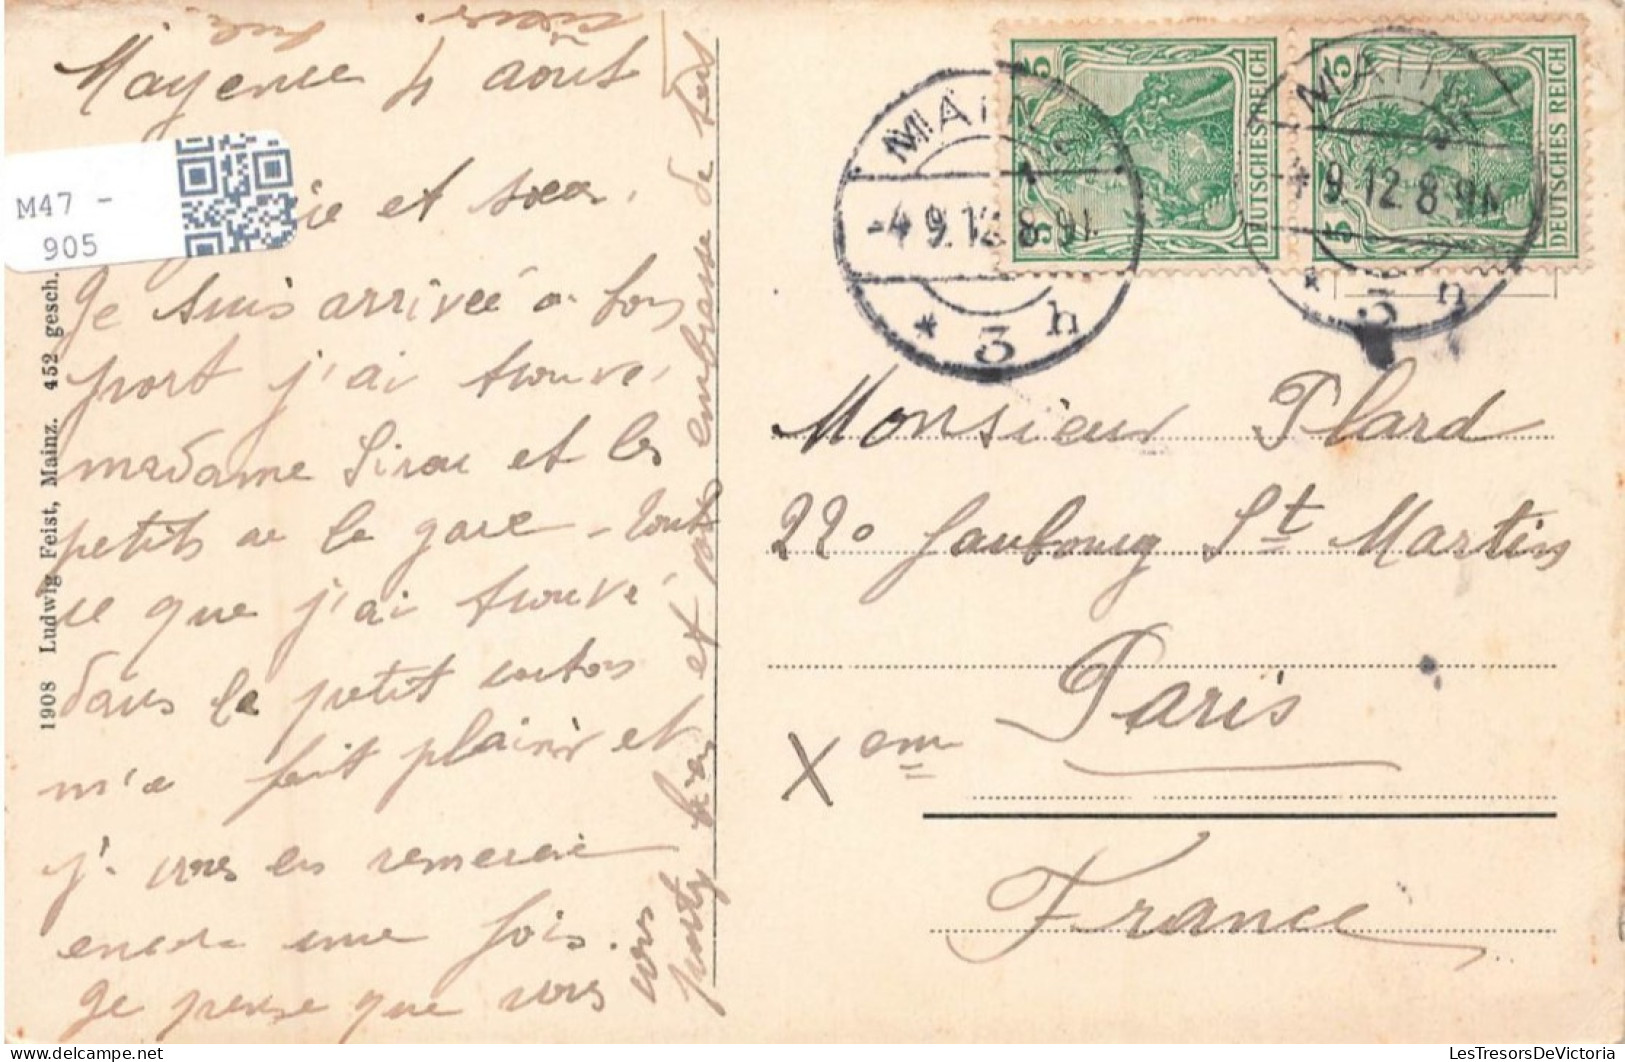 Mayence 4 août
et soeur.
Je suis arrivée a bon
port j'ai trouvé
madame Sirac et les
petits a la gare - tout
ce que j'ai trouvé
dans le petit carton
m'a fait plaisir et
j. vous en remercie
encore une fois.
Je pense que vous
vous
portez bien et vous embrasse de tout
M47 -
905
1908 Ludwig Feist, Mainz. 452 gesch.
5 DEUTSCHES REICH 5
5 DEUTSCHES REICH 5
MAINZ
-4 9.12. 8-9 V.
* 3 h
MAINZ
* 9.12 8-9 V.
* 3 h
Monsieur Plard
220 faubourg St Martin
Paris
X em
France
www.LesTresorsDeVictoria.com